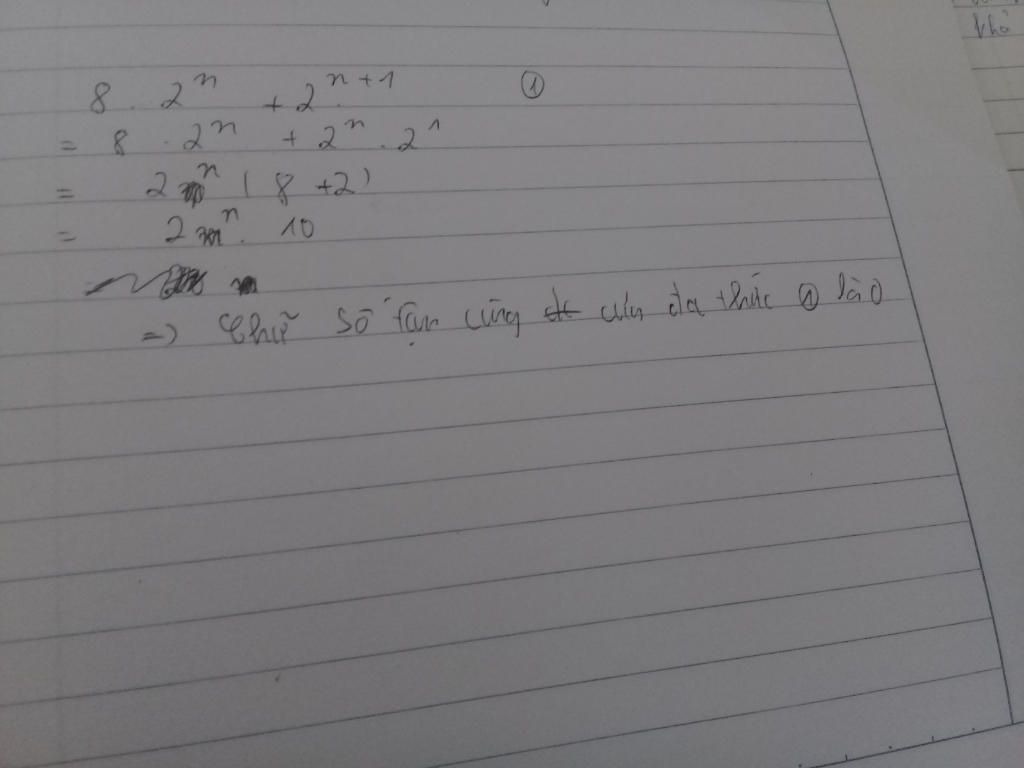 khô
8 . 2ⁿ + 2ⁿ⁺¹ ①
= 8 . 2ⁿ + 2ⁿ . 2¹
= 2ⁿ ( 8 + 2 )
= 2ⁿ . 10
=> Chữ số tận cùng của đa thức ① là 0